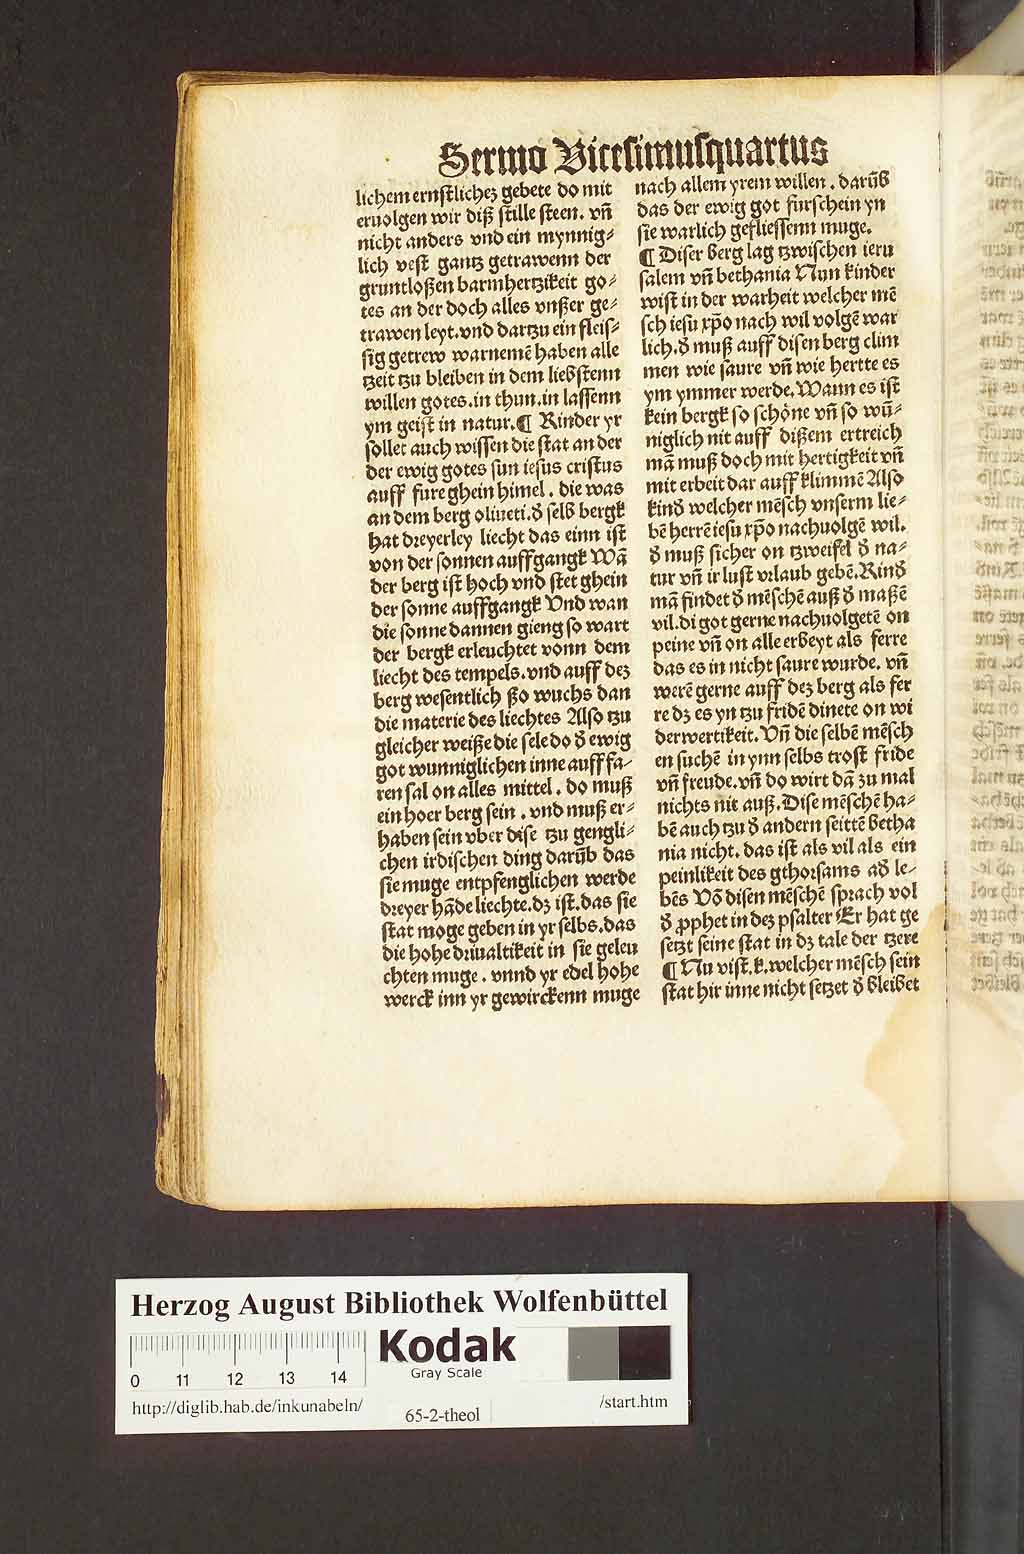 Sermo Vicesimusquartus
lichem ernstlicheʒ gebete do mit
eruolgen wir diß stille steen. vñ
nicht anders vnd ein mynnig⸗
lich vest gantz getrawenn der
gruntloßen barmhertzikeit go⸗
tes an der doch alles vnßer ge⸗
trawen leyt. vnd dartzu ein fleis⸗
sig getrew warnemē haben alle
tzeit tzu bleiben in dem liebstenn
willen gotes. in thun. in lassenn
ym geist in natur. ¶ Kinder yr
sollet auch wissen die stat an der
der ewig gotes sun iesus cristus
auff fure ghein himel. die was
an dem berg oliueti. d̕ selb bergk
hat dreyerley liecht das einn ist
von der sonnen auffgangk Wā
der berg ist hoch vnd stet ghein
der sonne auffgangk Vnd wan
die sonne dannen gieng so wart
der bergk erleuchtet vonn dem
liecht des tempels. vnd auff deʒ
berg wesentlich ßo wuchs dan
die materie des liechtes Also tzu
gleicher weiße die sele do d̕ ewig
got wunniglichen inne auff fa⸗
ren sal on alles mittel. do muß
ein hoer berg sein. vnd muß er⸗
haben sein vber dise tzu gengli⸗
chen irdischen ding darūb das
sie muge entpfenglichen werde
dreyer hāde liechte. dʒ ist. das sie
stat moge geben in yr selbs. das
die hohe driualtikeit in sie geleu
chten muge. vnnd yr edel hohe
werck inn yr gewirckenn muge
nach allem yrem willen. darūb
das der ewig got furschein yn
sie warlich gefliessenn muge.
¶ Diser berg lag tzwischen ieru
salem vñ bethania Nun kinder
wist in der warheit welcher mē
sch iesu xp̄o nach wil volgē war
lich. d̕ muß auff disen berg clim
men wie saure vñ wie hertte es
ym ymmer werde. Wann es ist
kein bergk so schöne vñ so wū⸗
niglich nit auff dißem ertreich
mā muß doch mit hertigkeit vñ
mit erbeit dar auff klimmē Also
kind̕ welcher mēsch vnserm lie⸗
bē herrē iesu xp̄o nachuolgē wil.
d̕ muß sicher on tzweifel d̕ na⸗
tur vñ ir lust vrlaub gebē. Kind̕
mā findet d̕ mēschē auß d̕ maßē
vil. di got gerne nachuolgetē on
peine vñ on alle erbeyt als ferre
das es in nicht saure wurde. vñ
werē gerne auff deʒ berg als fer
re dʒ es yn tzu fridē dinete on wi
derwertikeit. Vñ die selbē mēsch
en suchē in ynn selbs trost fride
vñ freude. vñ do wirt dā zu mal
nichts nit auß. Dise mēschē ha⸗
bē auch tzu d̕ andern seittē betha
nia nicht. das ist als vil als ein
peinlikeit des gthorsams ad̕ le⸗
bēs Vō disen mēschē sprach vol
d̕ ꝓphet in deʒ psalter Er hat ge
setzt seine stat in dʒ tale der tzere
¶ Nu vist. k. welcher mēsch sein
stat hir inne nicht setzet d̕ bleibet
Herzog August Bibliothek Wolfenbüttel
Kodak
Gray Scale
0 11 12 13 14
http://diglib.hab.de/inkunabeln/
65-2-theol
/start.htm